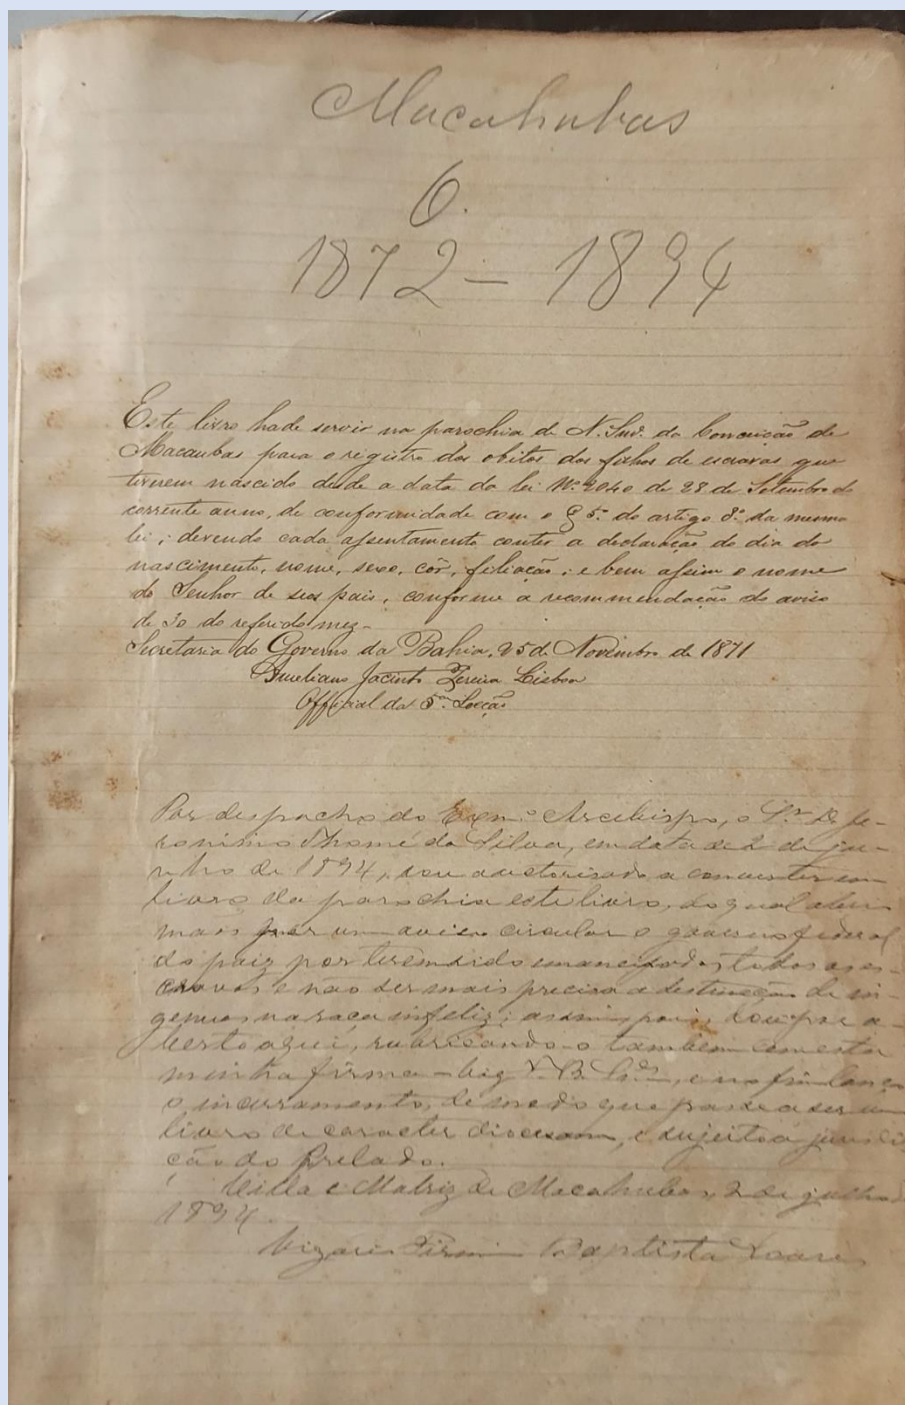 Macahubas
6.
1872 — 1894
Este livro hade servir na parochia de N. Snrª. da Conceição de
Macaubas para o registro dos obitos dos filhos de escravas que
tiverem nascido desde a data da lei Nº 2040 de 28 de Setembro do
corrente anno, de conformidade com o § 5º do artigo 8º da mesma
lei; devendo cada assentamento conter a declaração do dia do
nascimento, nome, sexo, côr, filiação; e bem assim o nome
do Senhor de seos pais, conforme a recommendação do aviso
de 30 do referido mez.
Secretaria do Governo da Bahia, 25 de Novembro de 1871
Aureliano Jacinto Pereira Lisboa
Official da 5ª Secção
Por despacho do Exmº Arcebispo, o Sr. D. Je-
ronimo Thomé da Silva, em data de 2 de ju-
nho de 1894, sou auctorisado a converter em
livro da parochia este livro, do qual
mais um aviso circular o governo federal
do paiz por terem sido emancipados todos os es-
cravos e não ser mais precisa a destincção de in-
genuos na raça infeliz; assim pois, dou por a-
berto aqui, rubricando-o tambem com esta
minha firma – Vigº F. B. , e no fim lanço
o incerramento, de modo que passe a ser um
livro de caracter diocesano, e sujeito a jurisdi-
ção do Prelado.
Villa e Matriz de Macahubas, 2 de julho
1894.
Vigario Firmino Baptista Soares